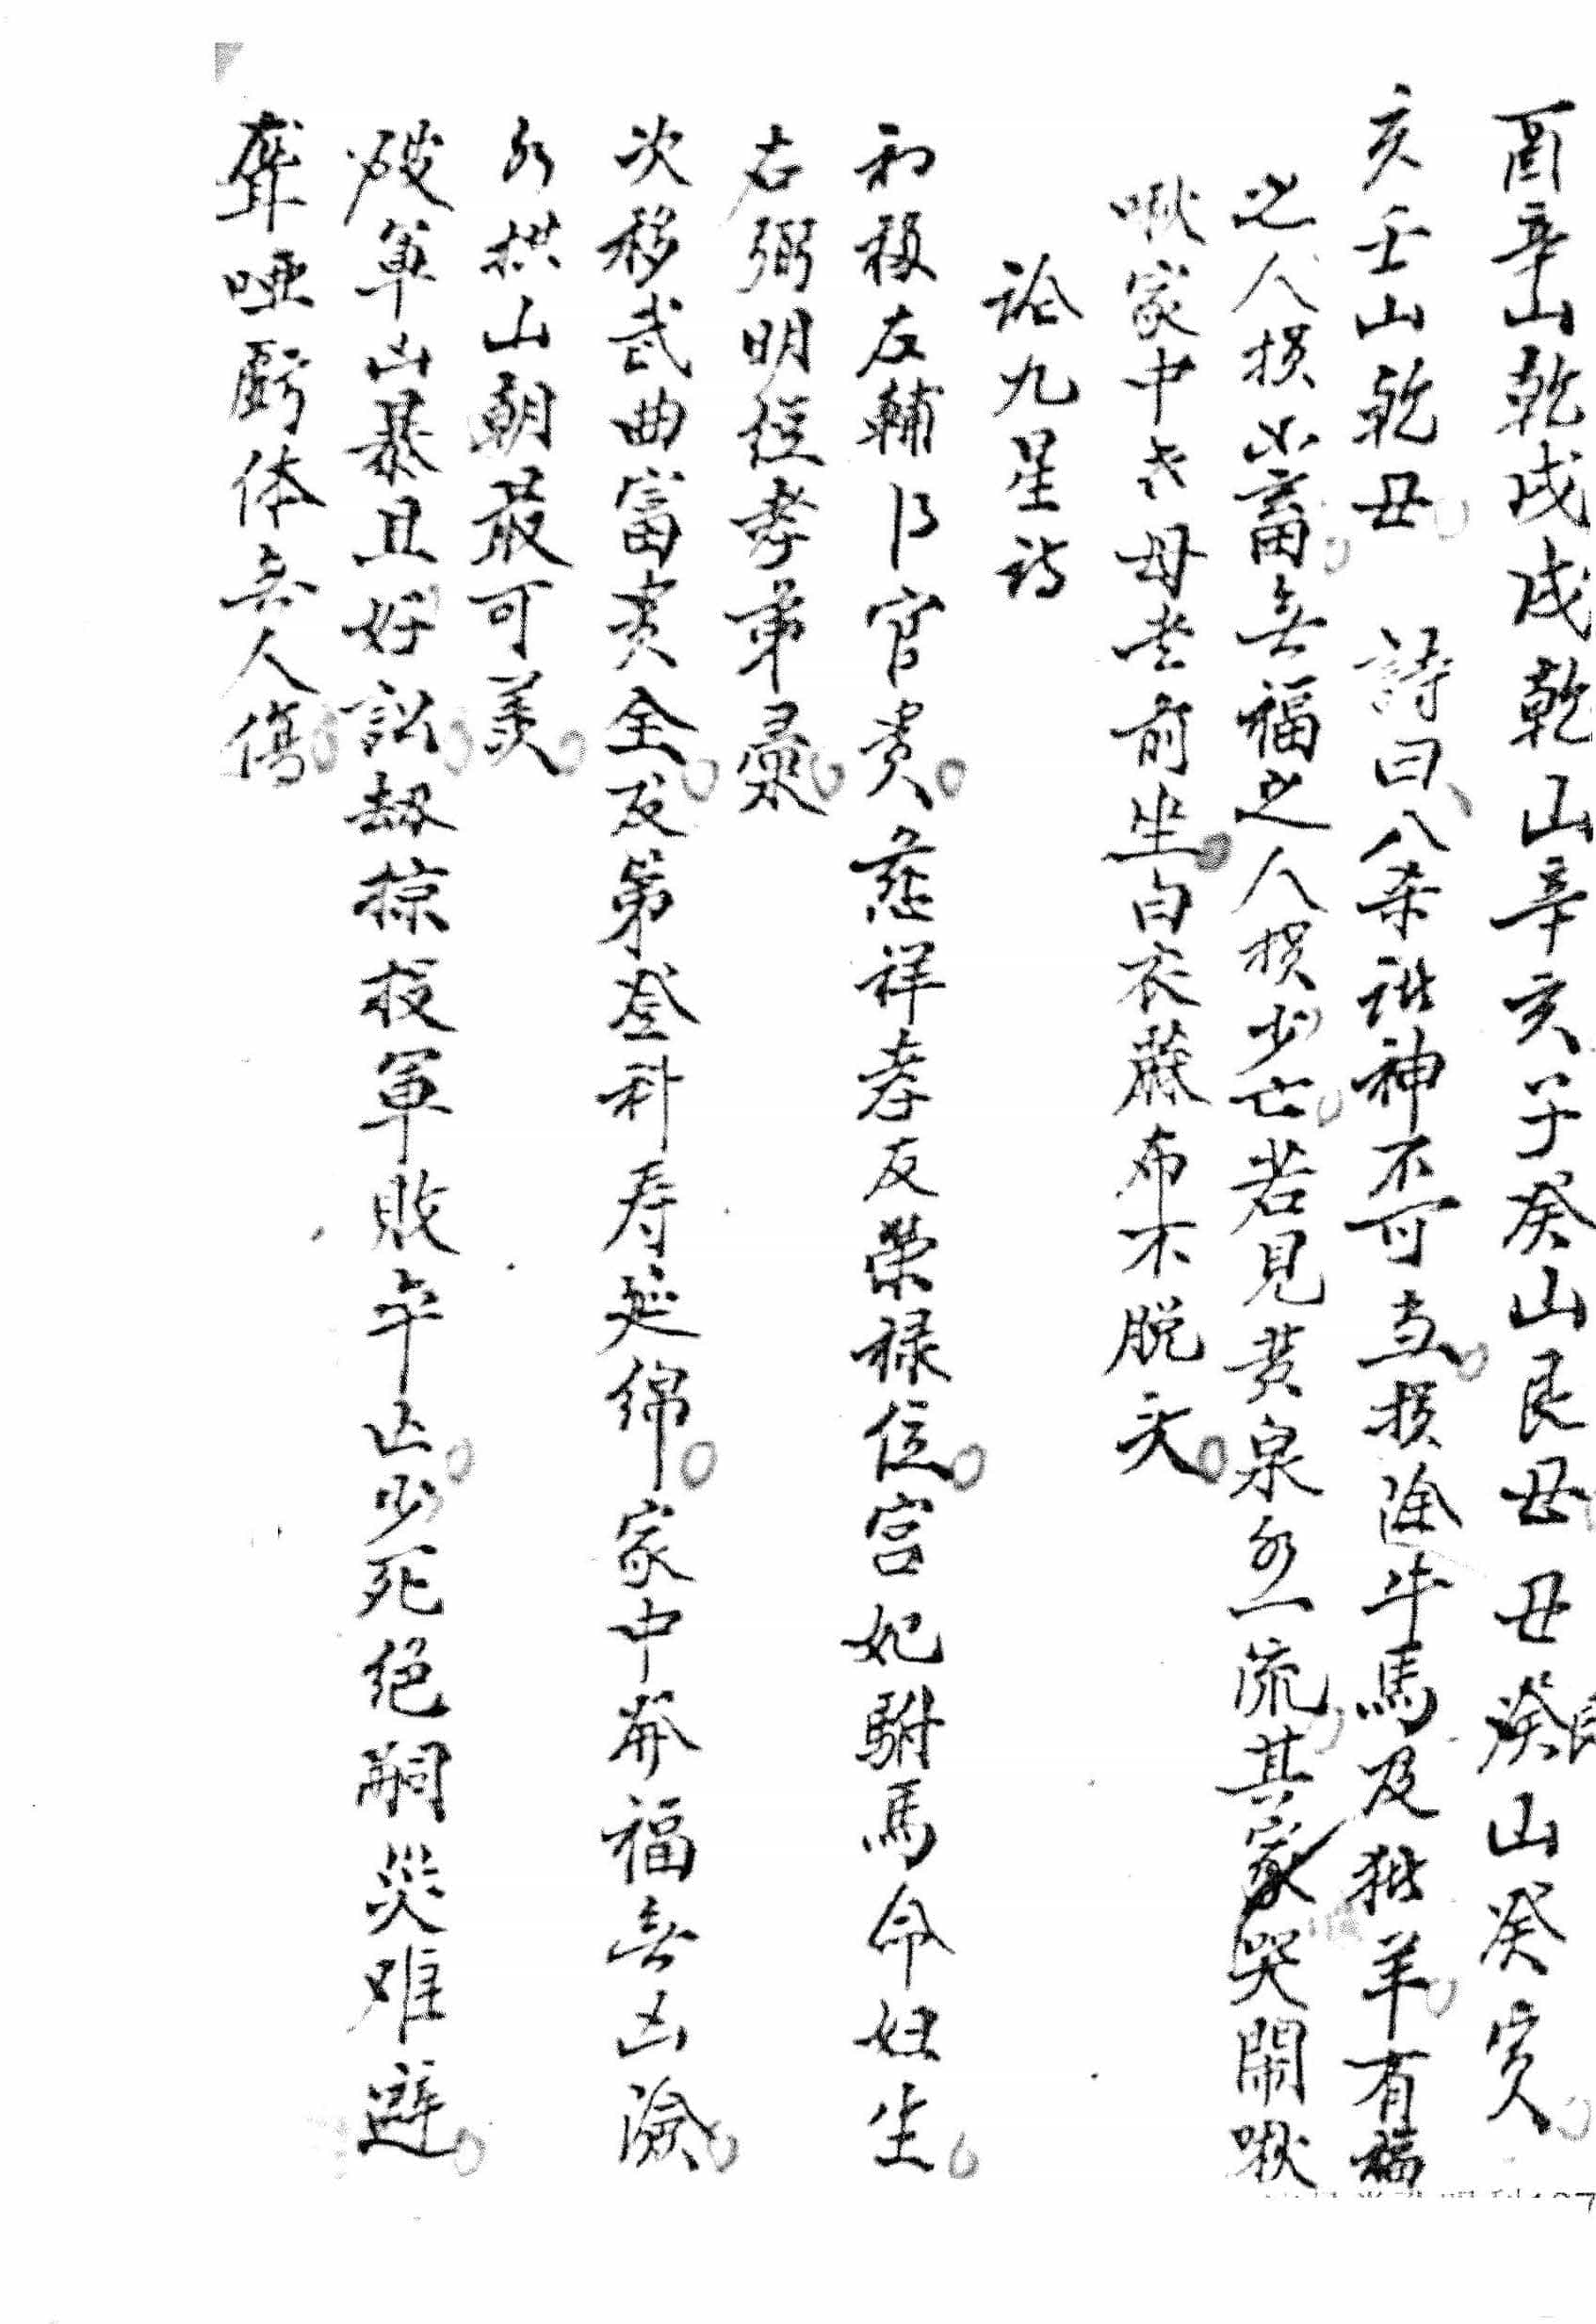 酉辛山乾戌戌乾山辛亥子癸山艮丑丑癸艮山癸寅
亥壬山乾丑 詩曰八杀诸神不可当损除牛馬及猪羊有福
之人损六畜无福之人损少亡若見黄泉水一流其家哭鬧啾
啾家中老母堂前坐白衣蔴布不脱
论九星诗
初移左輔官贵慈祥孝友荣禄位宫妃駙馬命妇生
右弼明经孝弟
次移武曲富贵全及第登科寿延绵家中發福无凶險
水拱山朝最可羡
破軍凶暴且好訟劫掠投軍敗卒亡少死绝嗣災难避
聋哑虧体无人傷